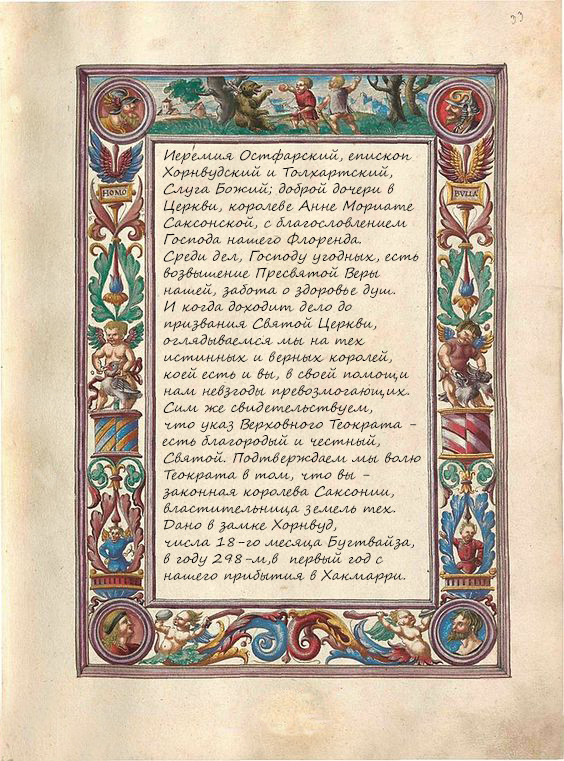 33
HOMO
BVLLA
Иеремия Остфарский, епископ
Хорнвудский и Толхартский,
Слуга Божий; доброй дочери в
Церкви, королеве Анне Мориате
Саксонской, с благословлением
Господа нашего Флоренда.
Среди дел, Господу угодных, есть
возвышение Пресвятой Веры
нашей, забота о здоровье душ.
И когда доходит дело до
призвания Святой Церкви,
оглядываемся мы на тех
истинных и верных королей,
коей есть и вы, в своей помощи
нам невзгоды превозмогающих.
Сим же свидетельствуем,
что указ Верховного Теократа -
есть благородый и честный,
Святой. Подтверждаем мы волю
Теократа в том, что вы -
законная королева Саксонии,
властительница земель тех.
Дано в замке Хорнвуд,
числа 18-го месяца Бугтвайза,
в году 298-м,в первый год с
нашего прибытия в Хакмарри.